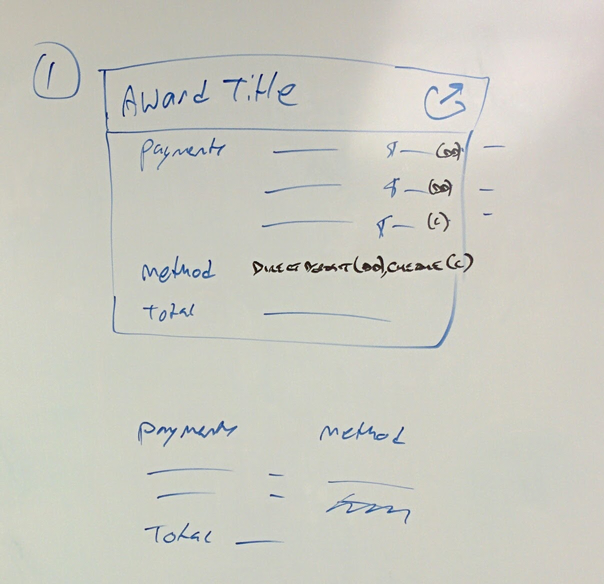 1
Award Title
Payments $ (DD)
$ (DD)
$ (C)
Method DIRECT DEPOSIT (DD), CHEQUE (C)
Total
Payments Method
Total